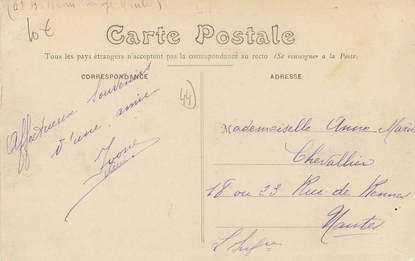 10€
Carte Postale
Tous les pays étrangers n'acceptent pas la correspondance au recto (Se renseigner à la Poste)
CORRESPONDANCE
ADRESSE
44
Affectueux souvenirs
d'une amie
Yvone
Mademoiselle Anne-Marie
Chevallier
18 ou 23 Rue de Rennes
Nantes